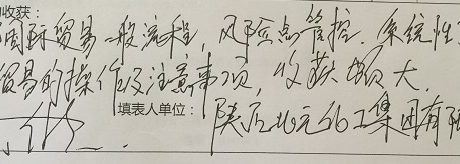 收获:
国际贸易一般流程,风险点管控.系统性
贸易的操作及注意事项,收获颇大.
填表人单位: 陕西北元化工集团有限